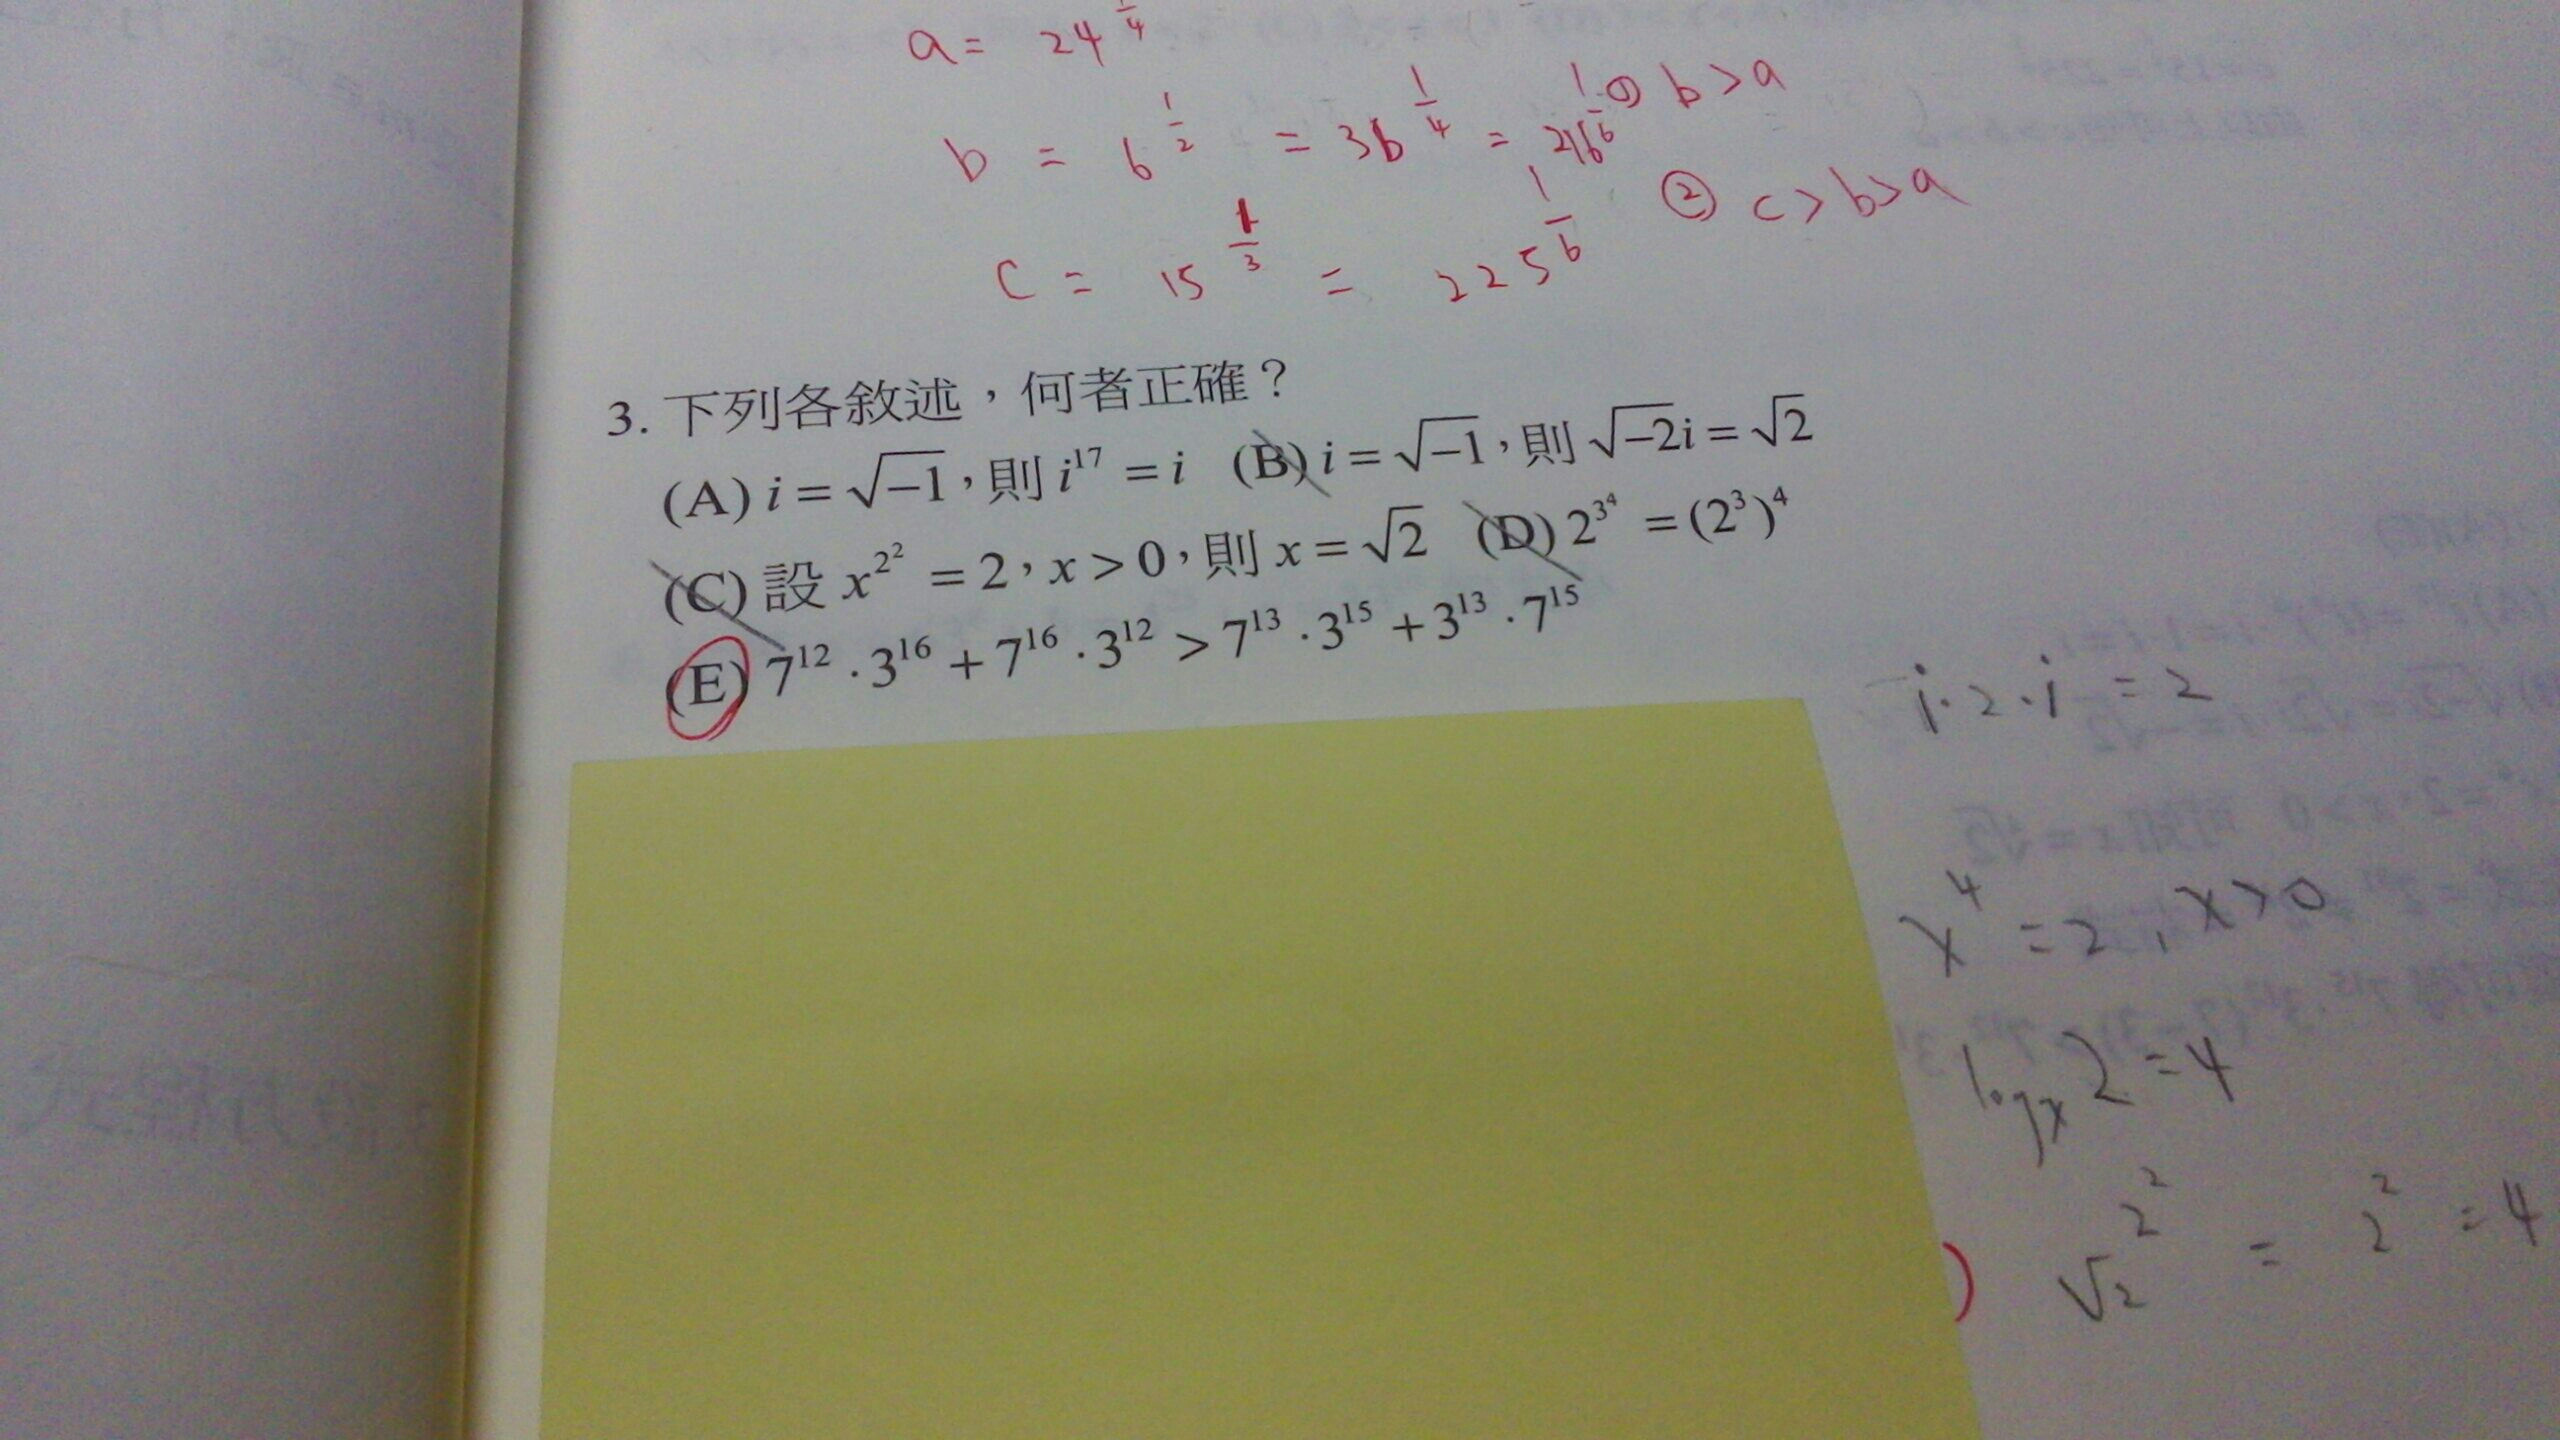 a = 24^{1/4}
b = 6^{1/2} = 36^{1/4} = 216^{1/6} ① b > a
c = 15^{1/3} = 225^{1/6} ② c > b > a
3. 下列各敘述，何者正確？
(A) i = √-1，則 i^{17} = i (B) i = √-1，則 √-2i = √2
(C) 設 x^{2^2} = 2，x > 0，則 x = √2 (D) 2^{3^4} = (2^3)^4
(E) 7^{12}·3^{16} + 7^{16}·3^{12} > 7^{13}·3^{15} + 3^{13}·7^{15}
i·2·i = 2
x^4 = 2, x > 0
log_x 2 = 4
√2^{2^2} = 2^2 = 4